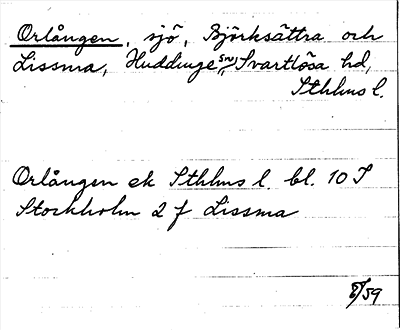 Orlången, sjö, Björksättra och
Lissma, Huddinge sn, Svartlösa hd,
Sthlms l.
Orlången ek Sthlms l. bl. 10 I
Stockholm 2 f Lissma
8/59